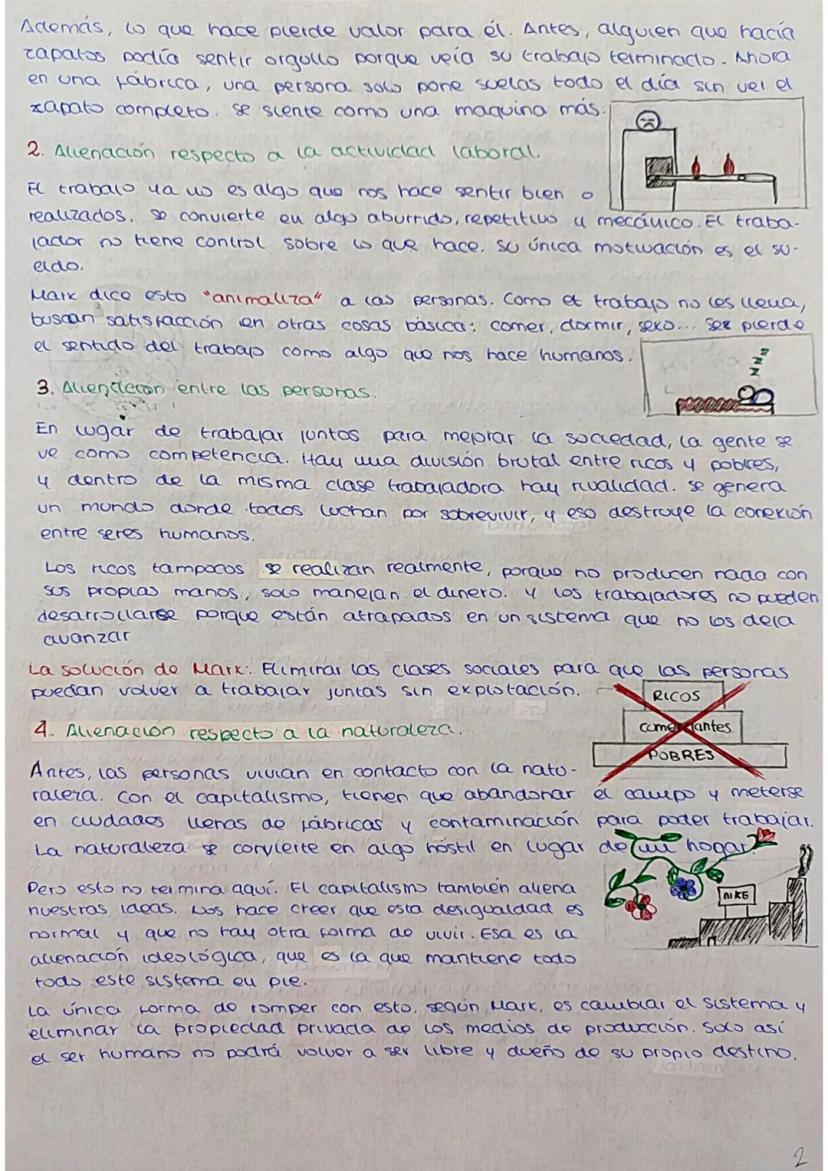 Además, lo que hace pierde valor para él. Antes, alguien que hacía
zapatos podía sentir orgullo porque veía su trabajo terminado. Ahora
en una fábrica, una persona solo pone suelas todo el día sin ver el
zapato completo. Se siente como una maquina más.
2. Alienación respecto a la actividad laboral.
El trabajo ya no es algo que nos hace sentir bien o
realizados. Se convierte en algo aburrido, repetitivo y mecánico. El traba-
jador no tiene control sobre lo que hace. Su única motivación es el su-
eldo.
Marx dice esto "animaliza" a las personas. Como el trabajo no les llena,
buscan satisfacción en otras cosas básica: comer, dormir, sexo... Ser pierde
el sentido del trabajo como algo que nos hace humanos.
zzzz
3. Alienación entre las personas.
En lugar de trabajar juntos para mejorar la sociedad, la gente se
ve como competencia. Hay una división brutal entre ricos y pobres,
y dentro de la misma clase trabajadora hay rivalidad. Se genera
un mundo donde todos luchan por sobrevivir, y eso destruye la conexión
entre seres humanos.
Los ricos tampocos se realizan realmente, porque no producen nada con
sus propias manos, solo manejan el dinero. Y los trabajadores no pueden
desarrollarse porque están atrapados en un sistema que no los deja
avanzar
La solución de Marx: Eliminar las clases sociales para que las personas
puedan volver a trabajar juntas sin explotación.
RICOS
comerciantes
POBRES
4. Alienación respecto a la naturaleza.
Antes, las personas vivían en contacto con la natu-
raleza. Con el capitalismo, tienen que abandonar el campo y meterse
en ciudades llenas de fábricas y contaminación para poder trabajar.
La naturaleza se convierte en algo hóstil en lugar de un hogar.
NIKE
Pero esto no termina aquí. El capitalismo también aliena
nuestras ideas. Nos hace creer que esta desigualdad es
normal y que no hay otra forma de vivir. Esa es la
alienación ideológica, que es la que mantiene todo
todo este sistema en pie.
La única forma de romper con esto, según Marx, es cambiar el sistema y
eliminar la propiedad privada de los medios de producción. Solo así
el ser humano no podrá volver a ser libre y dueño de su propio destino.
2